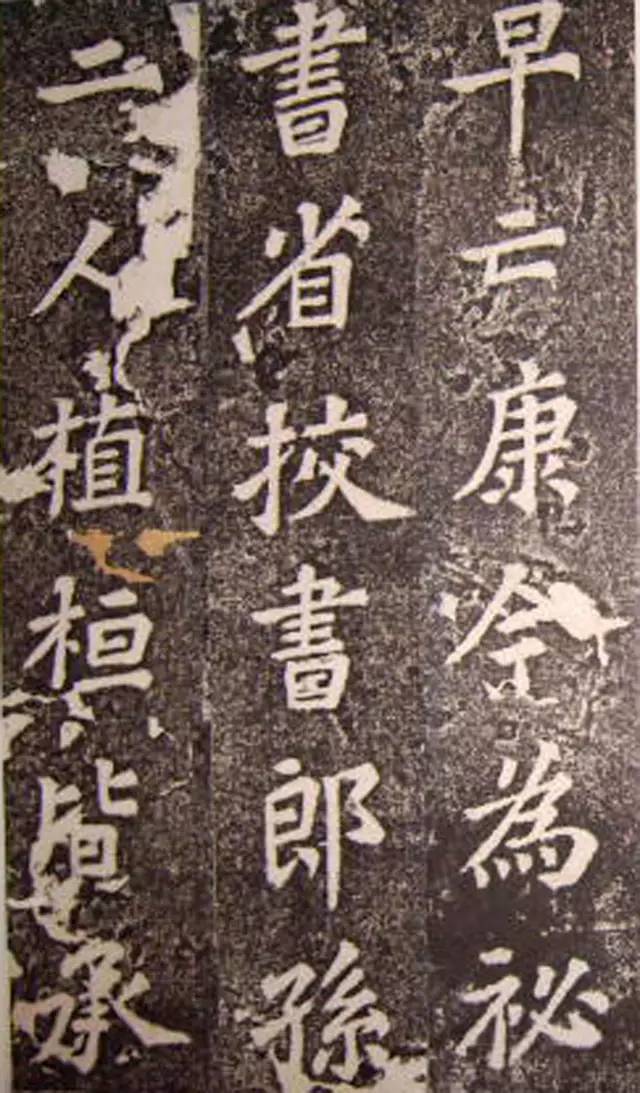 早亡康今為祕
書省挍書郎孫
二人植桓皆承